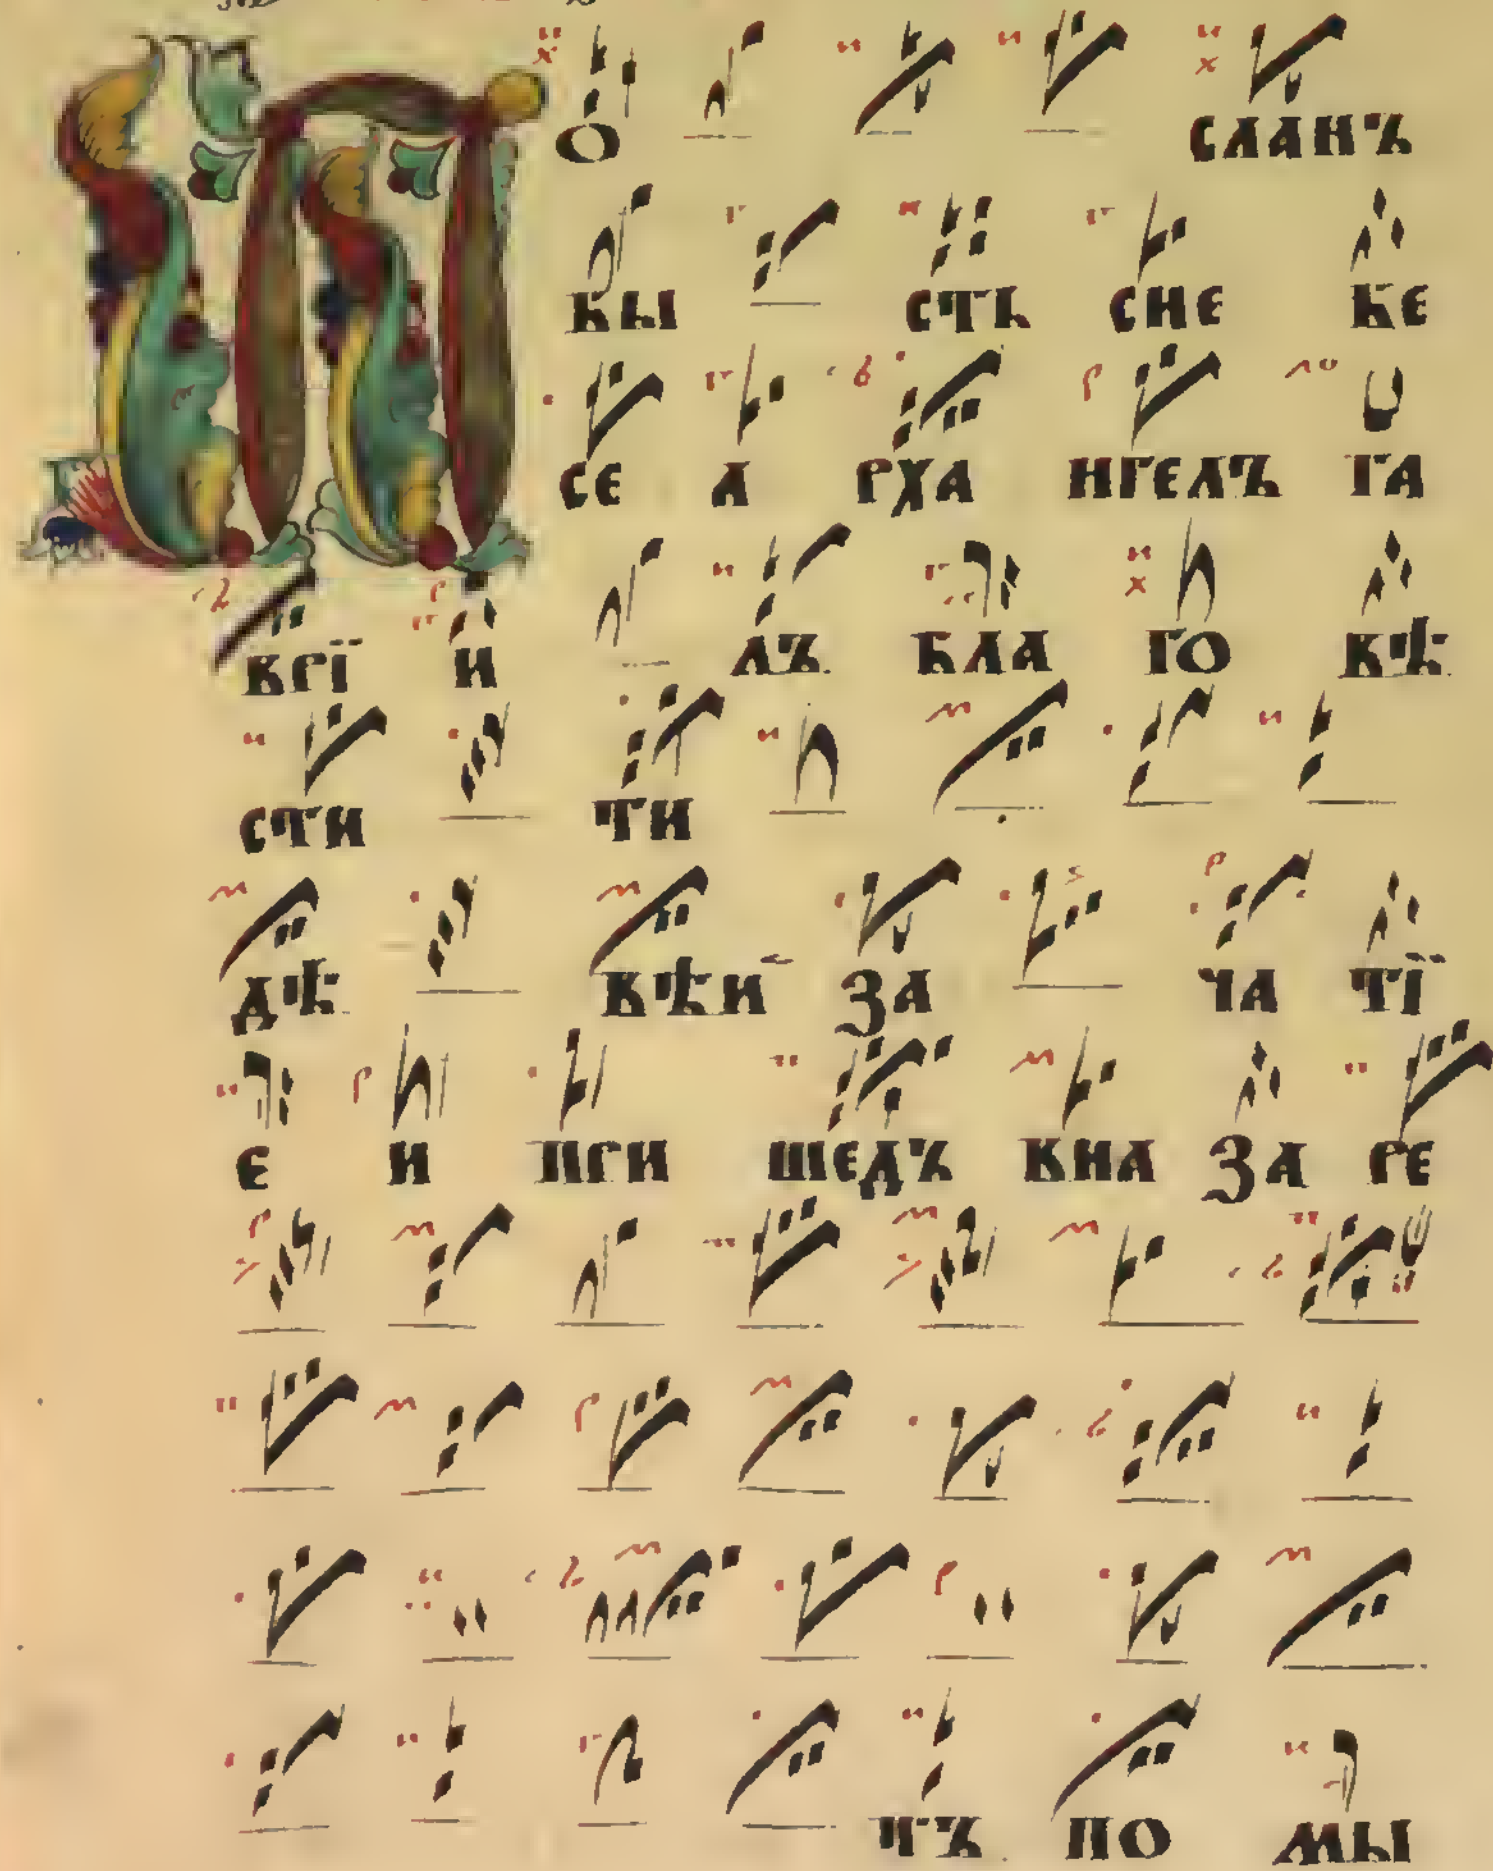 П О СЛАНЪ
БЫ СТЬ СНЕ БЕ
СЕ А РХА НГЕЛЪ ГА
ВРЇ И ЛЪ БЛА ГО ВѢ
СТИ ТИ
ДѢ ВѢИ ЗА ЧА ТЇ
Е И ПРИ ШЕДЪ ВНА ЗА РЕ
ПО МЫ